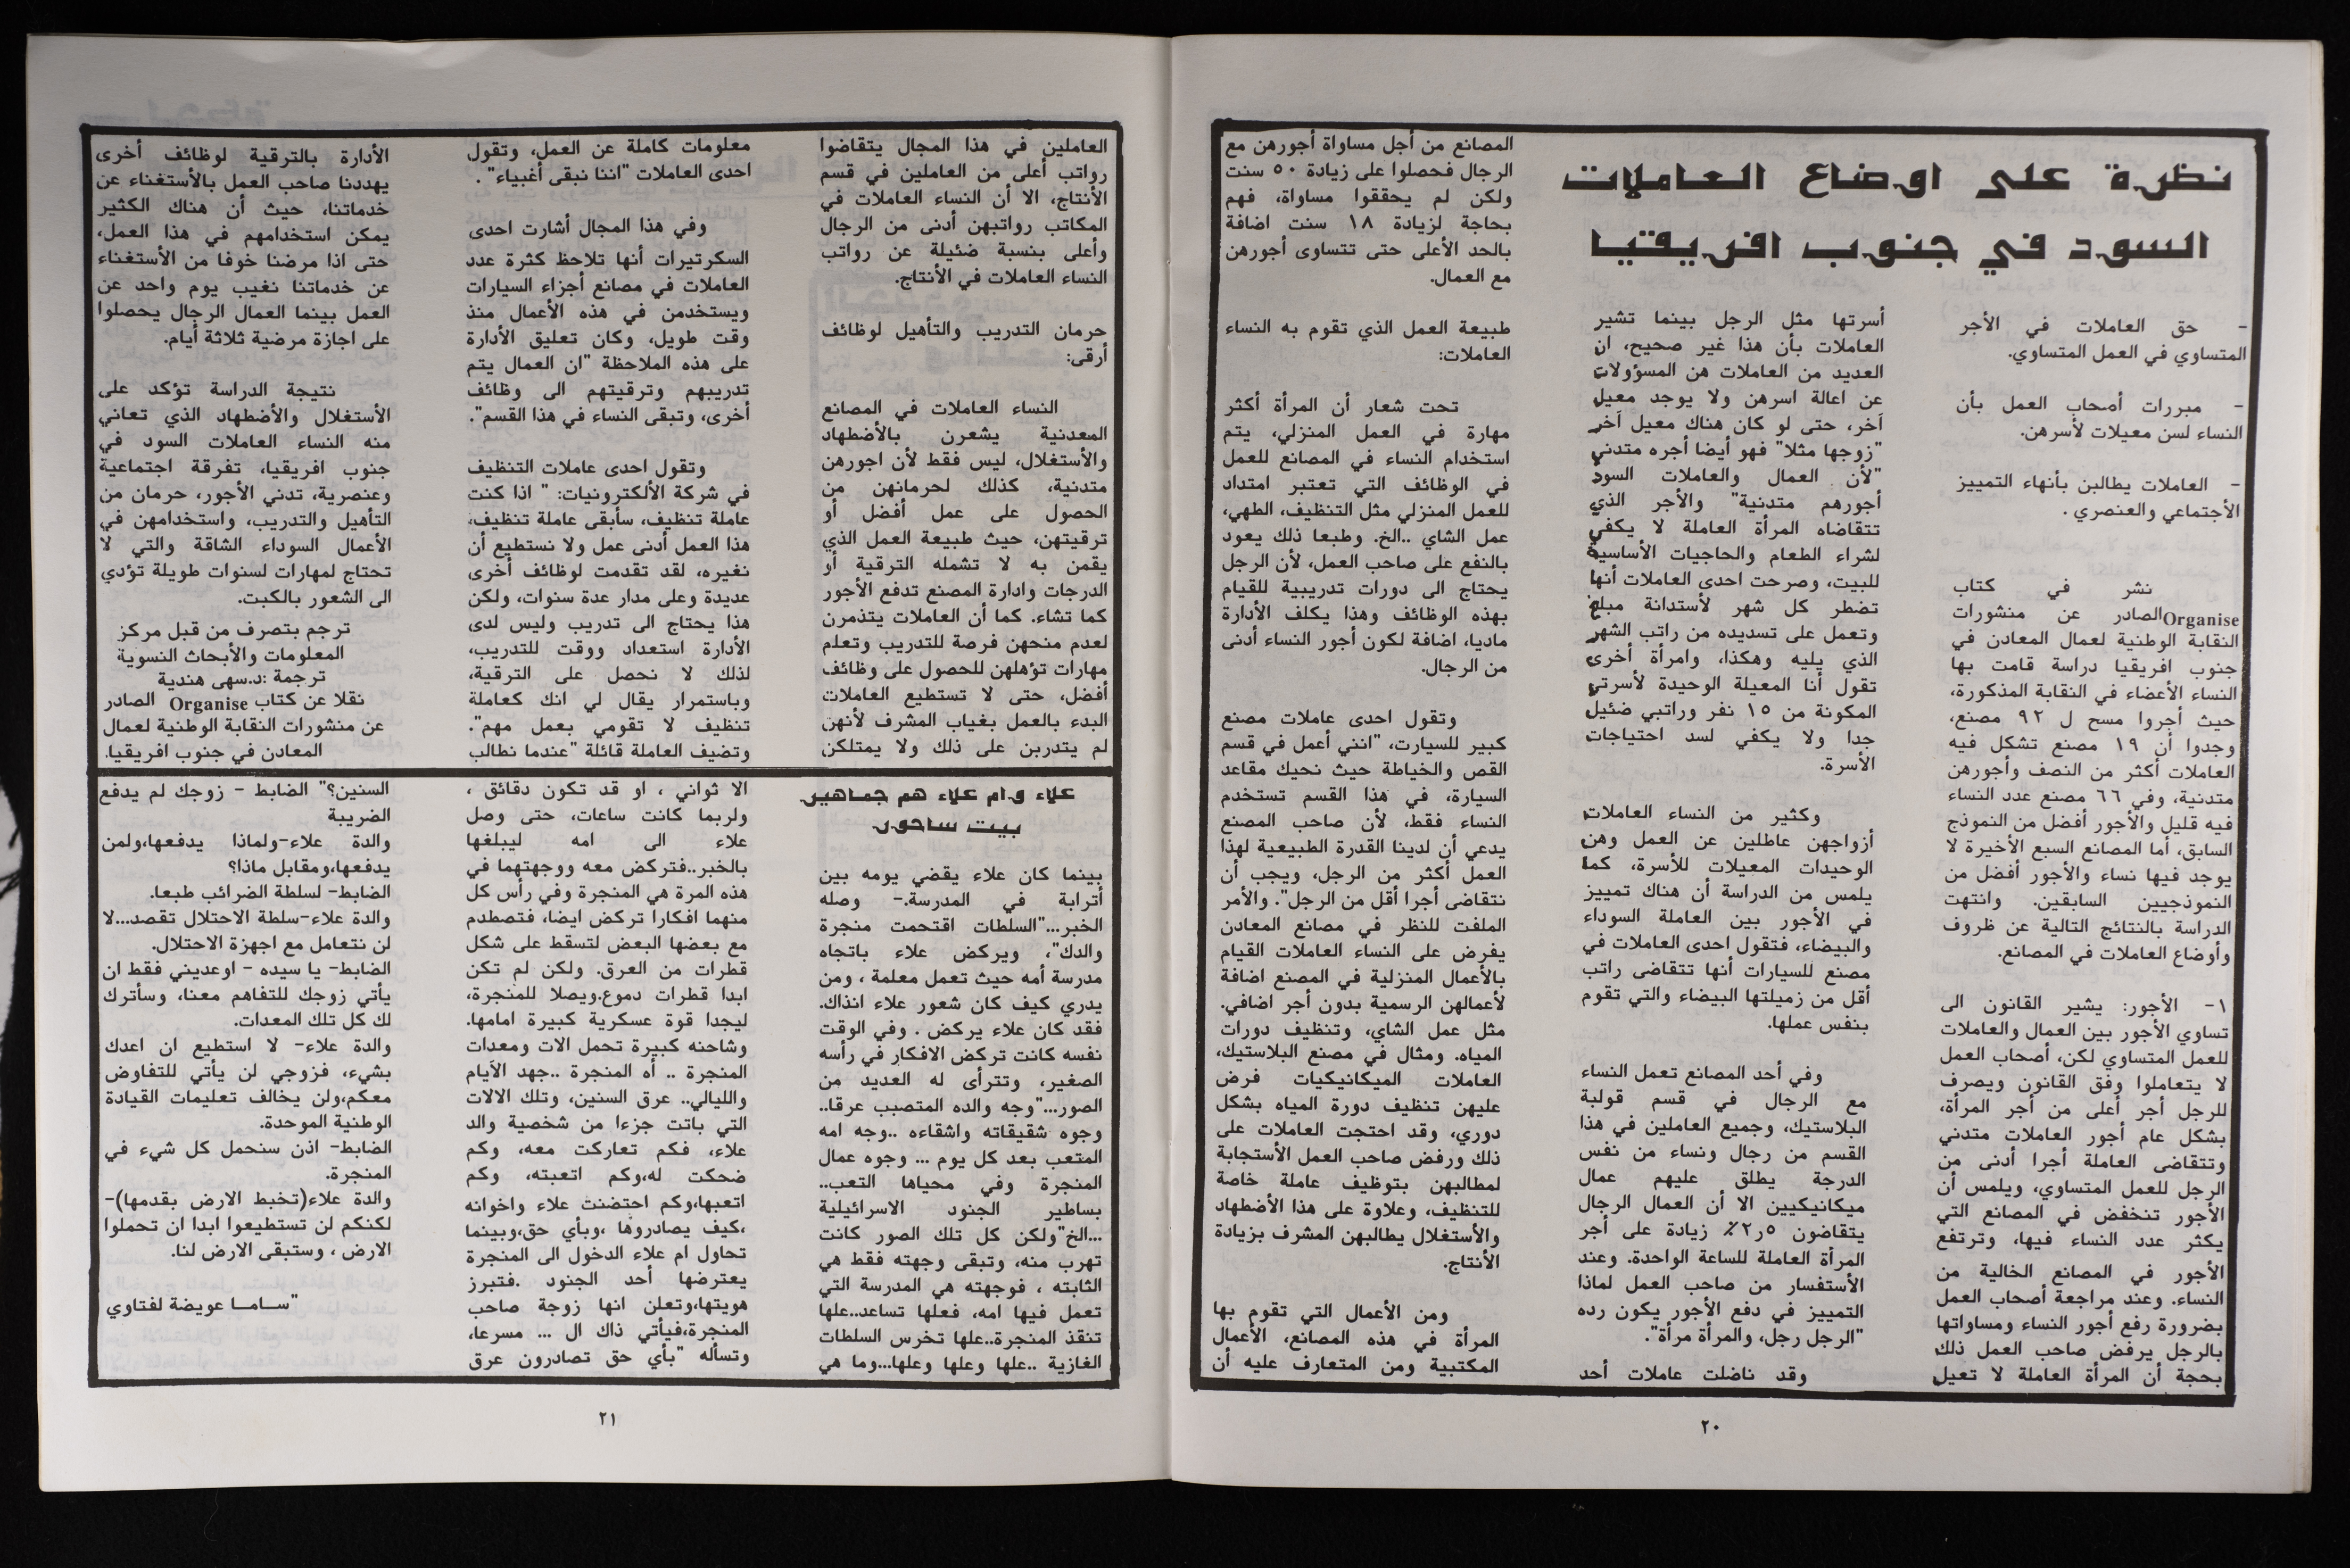 نظرة على اوضاع العاملات
السود في جنوب افريقيا
- حق العاملات في الأجر
المتساوي في العمل المتساوي.
- مبررات أصحاب العمل بأن
النساء لسن معيلات لأسرهن.
- العاملات يطالبن بأنهاء التمييز
الأجتماعي والعنصري .
نشر في كتاب
Organise الصادر عن منشورات
النقابة الوطنية لعمال المعادن في
جنوب افريقيا دراسة قامت بها
النساء الأعضاء في النقابة المذكورة،
حيث أجروا مسح ل ٩٢ مصنع،
وجدوا أن ١٩ مصنع تشكل فيه
العاملات أكثر من النصف وأجورهن
متدنية، وفي ٦٦ مصنع عدد النساء
فيه قليل والأجور أفضل من النموذج
السابق، أما المصانع السبع الأخيرة لا
يوجد فيها نساء والأجور أفضل من
النموذجيين السابقين. وانتهت
الدراسة بالنتائج التالية عن ظروف
وأوضاع العاملات في المصانع.
١- الأجور: يشير القانون الى
تساوي الأجور بين العمال والعاملات
للعمل المتساوي لكن، أصحاب العمل
لا يتعاملوا وفق القانون ويصرف
للرجل أجر أعلى من أجر المرأة،
بشكل عام أجور العاملات متدني
وتتقاضى العاملة أجرا أدنى من
الرجل للعمل المتساوي، ويلمس أن
الأجور تنخفض في المصانع التي
يكثر عدد النساء فيها، وترتفع
الأجور في المصانع الخالية من
النساء. وعند مراجعة أصحاب العمل
بضرورة رفع أجور النساء ومساواتها
بالرجل يرفض صاحب العمل ذلك
بحجة أن المرأة العاملة لا تعيل
أسرتها مثل الرجل بينما تشير
العاملات بأن هذا غير صحيح، ان
العديد من العاملات هن المسؤولات
عن اعالة اسرهن ولا يوجد معيل
آخر، حتى لو كان هناك معيل آخر
"زوجها مثلا" فهو أيضا أجره متدني
"لأن العمال والعاملات السود
أجورهم متدنية" والأجر الذي
تتقاضاه المرأة العاملة لا يكفي
لشراء الطعام والحاجيات الأساسية
للبيت، وصرحت احدى العاملات أنها
تضطر كل شهر لأستدانة مبلغ
وتعمل على تسديده من راتب الشهر
الذي يليه وهكذا، وامرأة أخرى
تقول أنا المعيلة الوحيدة لأسرتي
المكونة من ١٥ نفر وراتبي ضئيل
جدا ولا يكفي لسد احتياجات
الأسرة.
وكثير من النساء العاملات
أزواجهن عاطلين عن العمل وهن
الوحيدات المعيلات للأسرة، كما
يلمس من الدراسة أن هناك تمييز
في الأجور بين العاملة السوداء
والبيضاء، فتقول احدى العاملات في
مصنع للسيارات أنها تتقاضى راتب
أقل من زميلتها البيضاء والتي تقوم
بنفس عملها.
وفي أحد المصانع تعمل النساء
مع الرجال في قسم قولبة
البلاستيك، وجميع العاملين في هذا
القسم من رجال ونساء من نفس
الدرجة يطلق عليهم عمال
ميكانيكيين الا أن العمال الرجال
يتقاضون ٢٫٥٪ زيادة على أجر
المرأة العاملة للساعة الواحدة. وعند
الأستفسار من صاحب العمل لماذا
التمييز في دفع الأجور يكون رده
"الرجل رجل، والمرأة مرأة".
وقد ناضلت عاملات أحد
المصانع من أجل مساواة أجورهن مع
الرجال فحصلوا على زيادة ٥٠ سنت
ولكن لم يحققوا مساواة، فهم
بحاجة لزيادة ١٨ سنت اضافة
بالحد الأعلى حتى تتساوى أجورهن
مع العمال.
طبيعة العمل الذي تقوم به النساء
العاملات:
تحت شعار أن المرأة أكثر
مهارة في العمل المنزلي، يتم
استخدام النساء في المصانع للعمل
في الوظائف التي تعتبر امتداد
للعمل المنزلي مثل التنظيف، الطهي،
عمل الشاي ..الخ. وطبعا ذلك يعود
بالنفع على صاحب العمل، لأن الرجل
يحتاج الى دورات تدريبية للقيام
بهذه الوظائف وهذا يكلف الأدارة
ماديا، اضافة لكون أجور النساء أدنى
من الرجال.
وتقول احدى عاملات مصنع
كبير للسيارت، "انني أعمل في قسم
القص والخياطة حيث نحيك مقاعد
السيارة، في هذا القسم تستخدم
النساء فقط، لأن صاحب المصنع
يدعي أن لدينا القدرة الطبيعية لهذا
العمل أكثر من الرجل، ويجب أن
نتقاضى أجرا أقل من الرجل". والأمر
الملفت للنظر في مصانع المعادن
يفرض على النساء العاملات القيام
بالأعمال المنزلية في المصنع اضافة
لأعمالهن الرسمية بدون أجر اضافي.
مثل عمل الشاي، وتنظيف دورات
المياه. ومثال في مصنع البلاستيك،
العاملات الميكانيكيات فرض
عليهن تنظيف دورة المياه بشكل
دوري، وقد احتجت العاملات على
ذلك ورفض صاحب العمل الأستجابة
لمطالبهن بتوظيف عاملة خاصة
للتنظيف، وعلاوة على هذا الأضطهاد
والأستغلال يطالبهن المشرف بزيادة
الأنتاج.
ومن الأعمال التي تقوم بها
المرأة في هذه المصانع، الأعمال
المكتبية ومن المتعارف عليه أن
٢٠
العاملين في هذا المجال يتقاضوا
رواتب أعلى من العاملين في قسم
الأنتاج، الا أن النساء العاملات في
المكاتب رواتبهن أدنى من الرجال
وأعلى بنسبة ضئيلة عن رواتب
النساء العاملات في الأنتاج.
حرمان التدريب والتأهيل لوظائف
أرقى:
النساء العاملات في المصانع
المعدنية يشعرن بالأضطهاد
والأستغلال، ليس فقط لأن اجورهن
متدنية، كذلك لحرمانهن من
الحصول على عمل أفضل أو
ترقيتهن، حيث طبيعة العمل الذي
يقمن به لا تشمله الترقية أو
الدرجات وادارة المصنع تدفع الأجور
كما تشاء. كما أن العاملات يتذمرن
لعدم منحهن فرصة للتدريب وتعلم
مهارات تؤهلهن للحصول على وظائف
أفضل، حتى لا تستطيع العاملات
البدء بالعمل بغياب المشرف لأنهن
لم يتدربن على ذلك ولا يمتلكن
معلومات كاملة عن العمل، وتقول
احدى العاملات "اننا نبقى أغبياء" .
وفي هذا المجال أشارت احدى
السكرتيرات أنها تلاحظ كثرة عدد
العاملات في مصانع أجزاء السيارات
ويستخدمن في هذه الأعمال منذ
وقت طويل، وكان تعليق الأدارة
على هذه الملاحظة "ان العمال يتم
تدريبهم وترقيتهم الى وظائف
أخرى، وتبقى النساء في هذا القسم".
وتقول احدى عاملات التنظيف
في شركة الألكترونيات: " اذا كنت
عاملة تنظيف، سأبقى عاملة تنظيف،
هذا العمل أدنى عمل ولا نستطيع أن
نغيره، لقد تقدمت لوظائف أخرى
عديدة وعلى مدار عدة سنوات، ولكن
هذا يحتاج الى تدريب وليس لدى
الأدارة استعداد ووقت للتدريب،
لذلك لا نحصل على الترقية،
وباستمرار يقال لي انك كعاملة
تنظيف لا تقومي بعمل مهم".
وتضيف العاملة قائلة "عندما نطالب
الأدارة بالترقية لوظائف أخرى
يهددنا صاحب العمل بالأستغناء عن
خدماتنا، حيث أن هناك الكثير
يمكن استخدامهم في هذا العمل،
حتى اذا مرضنا خوفا من الأستغناء
عن خدماتنا نغيب يوم واحد عن
العمل بينما العمال الرجال يحصلوا
على اجازة مرضية ثلاثة أيام.
نتيجة الدراسة تؤكد على
الأستغلال والأضطهاد الذي تعاني
منه النساء العاملات السود في
جنوب افريقيا، تفرقة اجتماعية
وعنصرية، تدني الأجور، حرمان من
التأهيل والتدريب، واستخدامهن في
الأعمال السوداء الشاقة والتي لا
تحتاج لمهارات لسنوات طويلة تؤدي
الى الشعور بالكبت.
ترجم بتصرف من قبل مركز
المعلومات والأبحاث النسوية
ترجمة :د.سهى هندية
نقلا عن كتاب Organise الصادر
عن منشورات النقابة الوطنية لعمال
المعادن في جنوب افريقيا.
علاء و.ام علاء هم جماهير
بيت ساحور
بينما كان علاء يقضي يومه بين
أترابة في المدرسة.- وصله
الخبر..."السلطات اقتحمت منجرة
والدك"، ويركض علاء باتجاه
مدرسة أمه حيث تعمل معلمة ، ومن
يدري كيف كان شعور علاء انذاك.
فقد كان علاء يركض . وفي الوقت
نفسه كانت تركض الافكار في رأسه
الصغير، وتترأى له العديد من
الصور..."وجه والده المتصبب عرقا..
وجوه شقيقاته واشقاءه ..وجه امه
المتعب بعد كل يوم ... وجوه عمال
المنجرة وفي محياها التعب..
بساطير الجنود الاسرائيلية
...الخ"ولكن كل تلك الصور كانت
تهرب منه، وتبقى وجهته فقط هي
الثابته ، فوجهته هي المدرسة التي
تعمل فيها امه، فعلها تساعد..علها
تنقذ المنجرة..علها تخرس السلطات
الغازية ..علها وعلها وعلها...وما هي
الا ثواني ، او قد تكون دقائق ،
ولربما كانت ساعات، حتى وصل
علاء الى امه ليبلغها
بالخبر..فتركض معه ووجهتهما في
هذه المرة هي المنجرة وفي رأس كل
منهما افكارا تركض ايضا، فتصطدم
مع بعضها البعض لتسقط على شكل
قطرات من العرق. ولكن لم تكن
ابدا قطرات دموع.ويصلا للمنجرة،
ليجدا قوة عسكرية كبيرة امامها.
وشاحنه كبيرة تحمل الات ومعدات
المنجرة .. آه المنجرة ..جهد الأيام
والليالي.. عرق السنين، وتلك الالات
التي باتت جزءا من شخصية والد
علاء، فكم تعاركت معه، وكم
ضحكت له،وكم اتعبته، وكم
اتعبها،وكم احتضنت علاء واخوانه
،كيف يصادروها ،وبأي حق،وبينما
تحاول ام علاء الدخول الى المنجرة
يعترضها أحد الجنود .فتبرز
هويتها،وتعلن انها زوجة صاحب
المنجرة،فيأتي ذاك ال ... مسرعا،
وتسأله "بأي حق تصادرون عرق
السنين؟" الضابط - زوجك لم يدفع
الضريبة
والدة علاء-ولماذا يدفعها،ولمن
يدفعها،ومقابل ماذا؟
الضابط- لسلطة الضرائب طبعا.
والدة علاء-سلطة الاحتلال تقصد...لا
لن نتعامل مع اجهزة الاحتلال.
الضابط- يا سيده - اوعديني فقط ان
يأتي زوجك للتفاهم معنا، وسأترك
لك كل تلك المعدات.
والدة علاء- لا استطيع ان اعدك
بشيء، فزوجي لن يأتي للتفاوض
معكم،ولن يخالف تعليمات القيادة
الوطنية الموحدة.
الضابط- اذن سنحمل كل شيء في
المنجرة.
والدة علاء(تخبط الارض بقدمها)-
لكنكم لن تستطيعوا ابدا ان تحملوا
الارض ، وستبقى الارض لنا.
"ساما عويضة لفتاوي
٢١